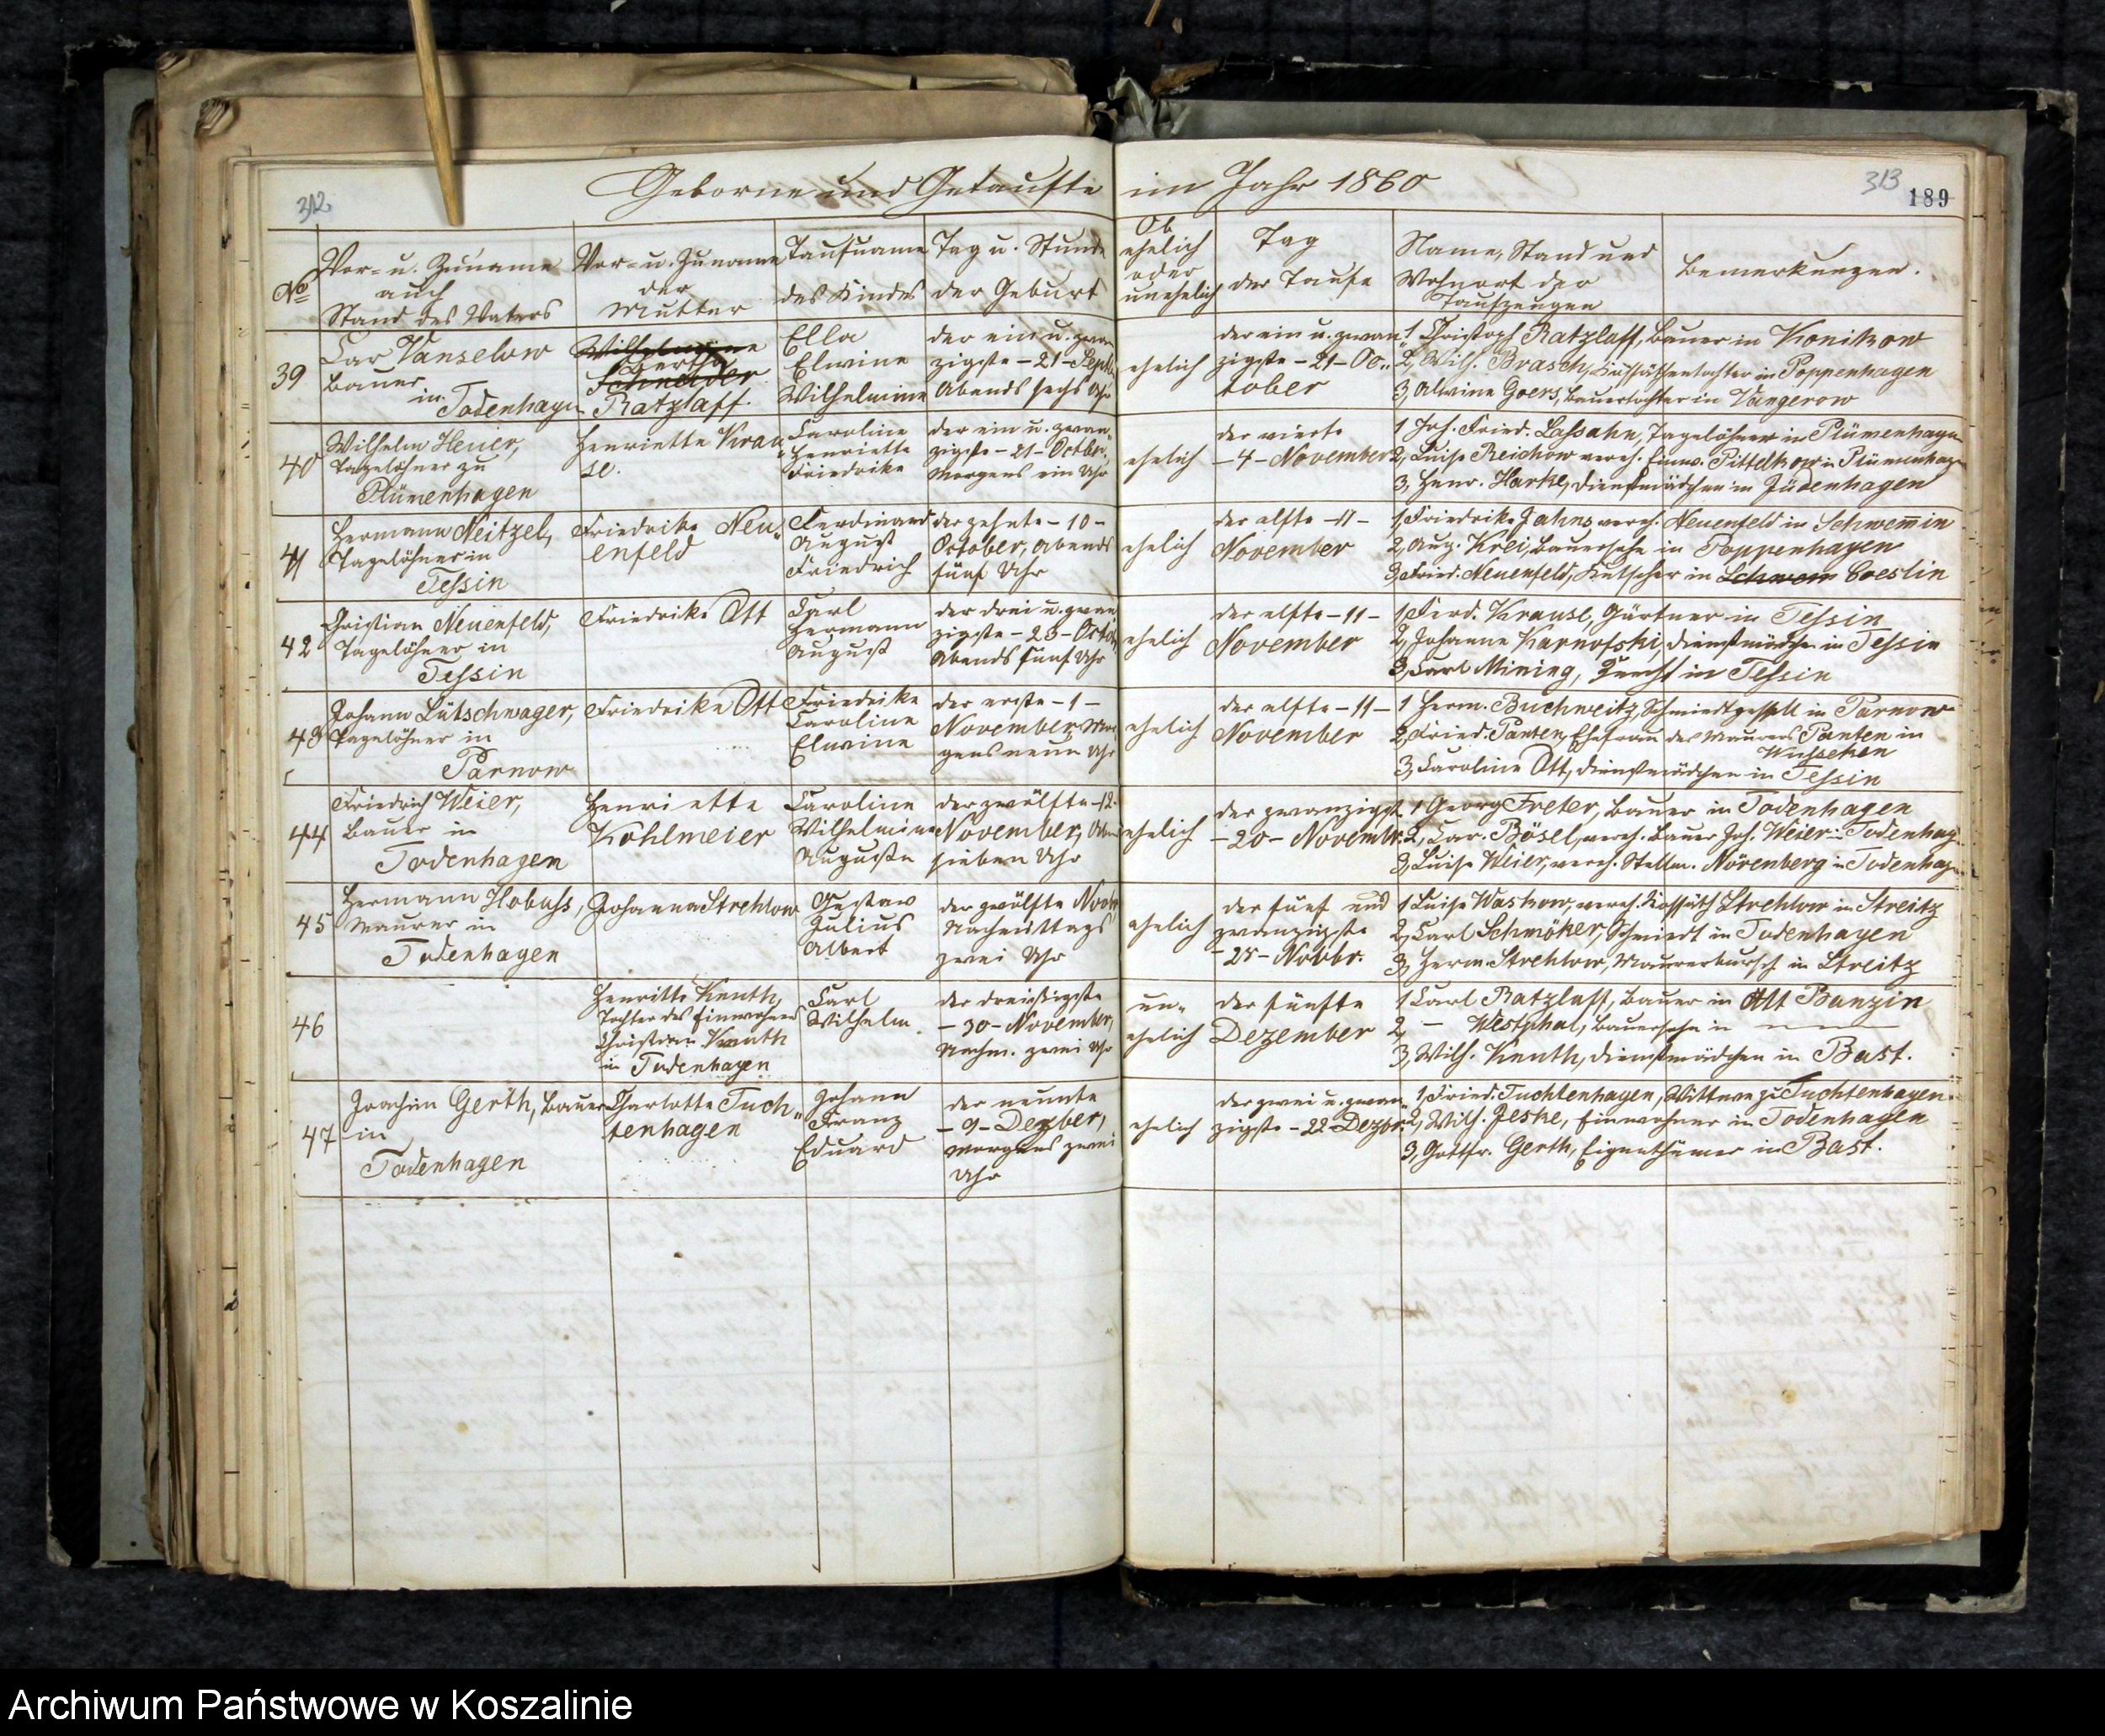 312
Geborne und Getaufte
im Jahr 1860
313
189
No
Vor- u. Zuname
auch
Stand des Vaters
Vor- u. Zuname
der
Mutter
Taufname
des Kindes
Tag u. Stunde
der Geburt
Ob
ehelich
oder
unehelich
Tag
der Taufe
Name, Stand und
Wohnort der
Taufzeugen
Bemerkungen.
39
Car Vanselow
Bauer
in
Todenhagen
Wilhelmine
Bertha
Schneider
Ratzlaff.
Ella
Elwine
Wilhelmine
der ein u. zwan
zigste - 21 - Septb.
Abends sechs Uhr
ehelich
der ein u. zwan
zigste - 21 - Oc-
tober
1 Christoph Ratzlaff, Bauer in Konikow
2, Wilh. Brasch, Kossäthentochter in Poppenhagen
3, Alwine Goers, Bauertochter in Vangerow
40
Wilhelm Heuer,
Tagelöhner zu
Plümenhagen
Henriette Krau
se.
Caroline
Henriette
Friedrike
der ein u. zwan-
zigste - 21 - Octbr.
Morgens ein Uhr
ehelich
der vierte
- 4 - November
1 Joh. Fried. Lassahn, Tagelöhner in Plümenhagen
2, Luise Reichow vereh. Einw. Pittelkow in Plümenhag
3, Henr. Harke, Dienstmädchen in Jüdenhagen
41
Hermann Neitzel,
Tagelöhner in
Tessin
Friedrike Neu-
enfeld
Ferdinand
August
Friedrich
der zehnte - 10 -
October, Abends
fünf Uhr
ehelich
der elfte - 11 -
November
1, Friedrike Jahns, verh. Neuenfeld in Schwemin
2, Aug. Krei, Bauersohn in Poppenhagen
3, Fried. Neuenfeld, Kutscher in Schwem Coeslin
42
Christian Neuenfeld,
Tagelöhner in
Tessin
Friedrike Ott
Carl
Hermann
August
der drei u. zwan
zigste - 23 - Octob.
Abends fünf Uhr
ehelich
der elfte - 11 -
November
1, Ferd. Krause, Gärtner in Tessin
2, Johanne Karnofski, Dienstmädchen in Tessin
3, Carl Mining, Knecht in Tessin
43
Johann Lütschwager,
Tagelöhner in
Parnow
Friedrike Ott
Friedrike
Caroline
Elwine
der erste - 1 -
November, Mor
gens neun Uhr
ehelich
der elfte - 11 -
November
1 Herm. Buchweitz, Schmiedgesell in Parnow
2, Fried. Panten, Ehefrau des Maurers Panten in
Wusseken
3, Caroline Ott, Dienstmädchen in Tessin
44
Friedrich Weier,
Bauer in
Todenhagen
Henriette
Kohlmeier
Caroline
Wilhelmine
Auguste
der zwölfte - 12 -
November, Abends
sieben Uhr
ehelich
der zwanzigste
- 20 - Novembr.
1 Georg Freter, Bauer in Todenhagen
2, Car. Bösel, verh. Bauer Joh. Weier in Todenhag
3, Luise Weier, verh. Stellm. Nörenberg in Todenhag
45
Hermann Hobuss,
Maurer in
Todenhagen
Johanna Strehlow
Gustav
Julius
Albert
der zwölfte Novbr
Nachmittags
zwei Uhr
ehelich
der fünf und
zwanzigste
- 25 - Novbr.
1 Luise Waskow, verh. Kossäth Strehlow in Streitz
2, Carl Schmöker, Schmiedt in Todenhagen
3, Herm. Strehlow, Maurerbursch in Streitz
46
Henritte Knuth,
Tochter des Einwohners
Christian Knuth
in Todenhagen
Carl
Wilhelm.
der dreissigste
- 30 - November,
Nachm. zwei Uhr
un-
ehelich
der fünfte
Dezember
1 Carl Ratzlaff, Bauer in Alt Banzin
2, - Westphal, Bauersohn in
3, Wilh. Knuth, Dienstmädchen in Bast.
47
Joachim Gerth, Bauer
in
Todenhagen
Charlotte Tuch-
tenhagen
Johann
Franz
Eduard
der neunte
- 9 - Dezber,
Morgens zwei
Uhr
ehelich
der zwei u. zwan-
zigste - 22 - Dezbr.
1, Fried. Tuchtenhagen, Wittwe zu Tuchtenhagen
2, Wilh. Jeske, Einwohner in Todenhagen
3, Gottfr. Gerth, Eigenthümer in Bast.
Archiwum Państwowe w Koszalinie